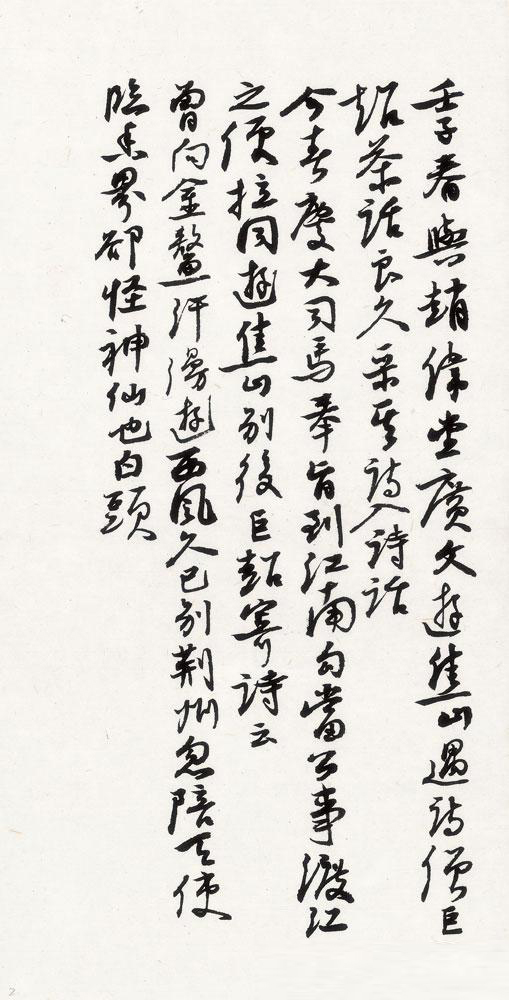 壬子春與趙偉堂廣文遊焦山遇詩僧巨
超茶話良久采其詩入詩話
今春慶大司馬奉旨到江南勾當公事渡江
之便拉同遊焦山別後巨超寄詩云
曾向金鼇汗漫遊西風久已別荆州忽陪天使
臨香界卻怪神仙也白頭